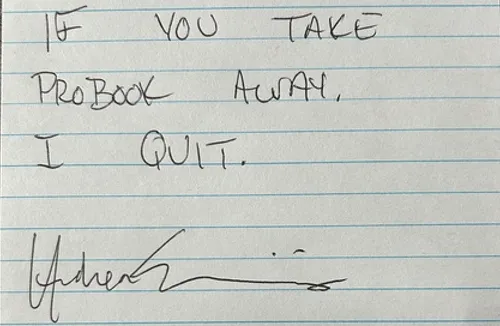 IF YOU TAKE
PROBOOK AWAY.
I QUIT.